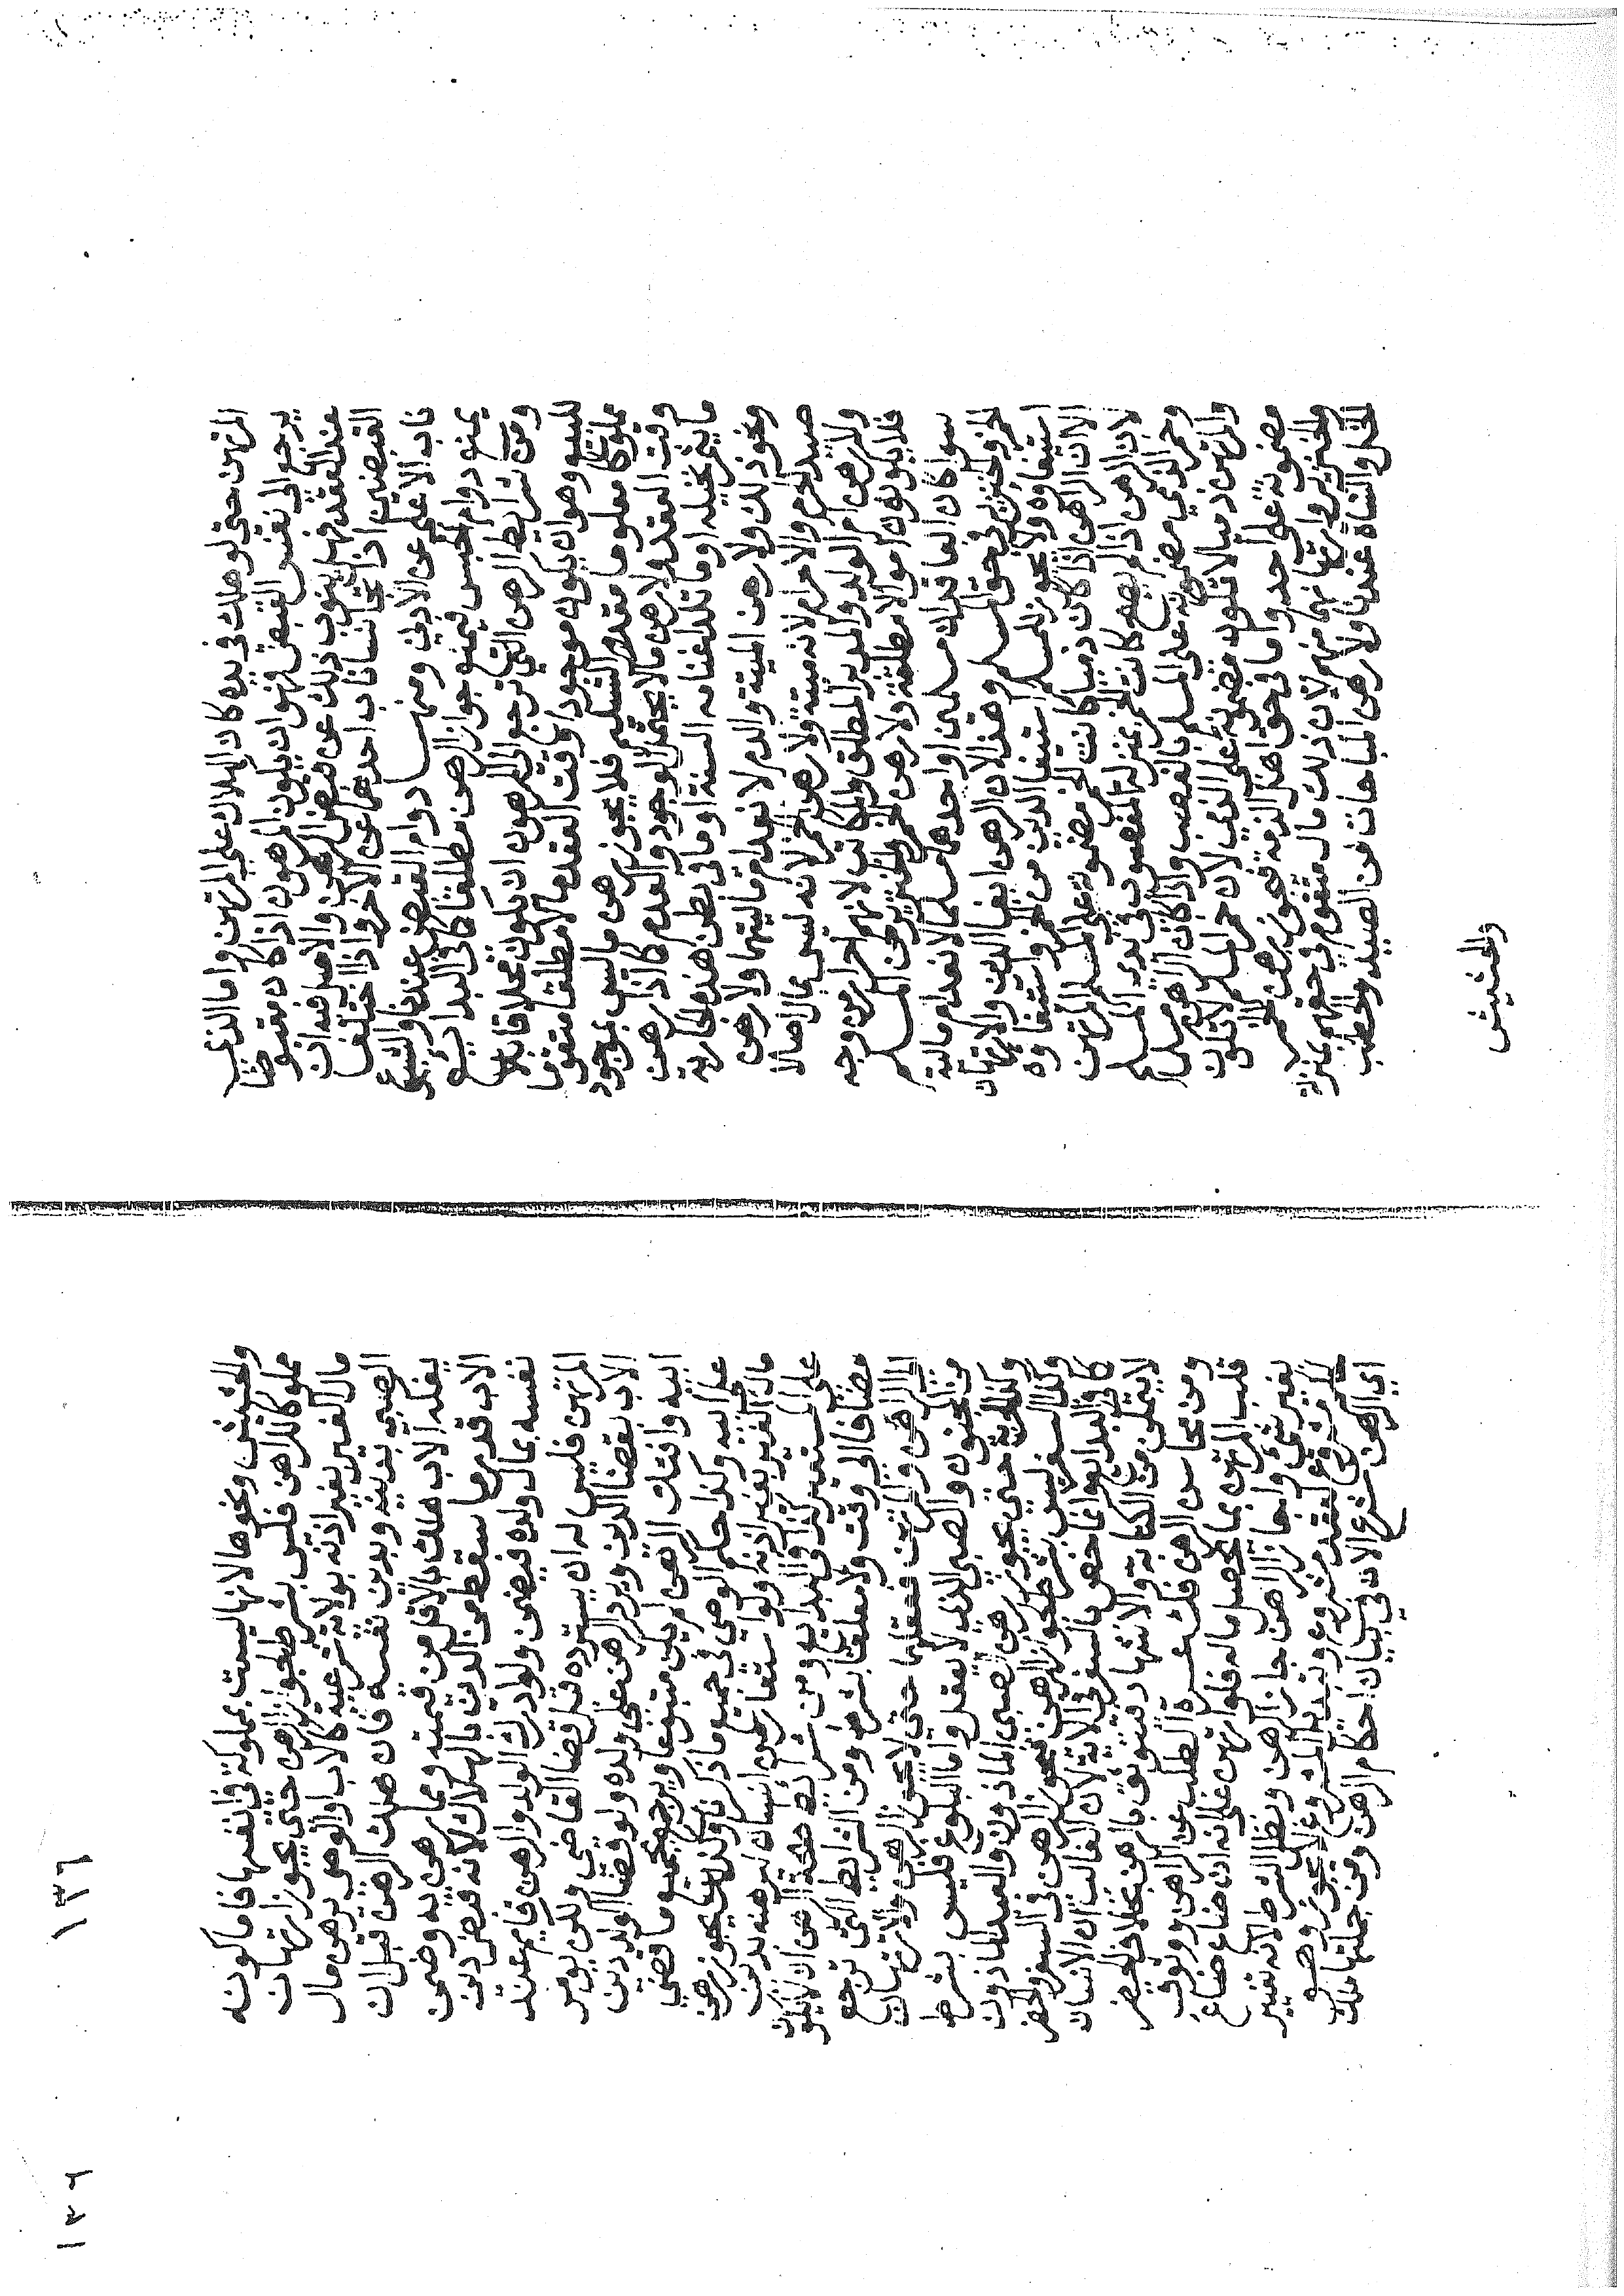 المرتهن حتى لو هلك في يده كان الهلاك على المرتهن واما الذي
يرجع الى نفس القبض فهو ان يكون المرهون اذا كان مقبوضا
عند العقد فهل ينوب ذلك عن قبض الرهن والاصل فيه ان
القبضين اذا تجانسا ناب احدهما عن الاخر واذا اختلفا
ناب الاعلى عن الادنى ومنها دوام القبض عندنا والشيوع
يمنع دوام الحبس فيمنع جواز الرهن مطلقا كما في البدايع
ومن شرايط الرهن التي ترجع الى المرهون ان يكون محلا قابلا
للبيع وهو ان يكون موجودا وقت العقد مالا مطلقا متقوما
مملوكا معلوما مقدور التسليم فلا يجوز رهن ما ليس بموجود
وقت العقد ولا رهن ما لا يحتمل الوجود والعدم كما اذا رهن
ما يثمر نخيله او ما تلد اغنامه السنة او ما في بطن هذه الجارية
ونحو ذلك ولا رهن الميتة والدم لانعدام ماليتهما ولا رهن
صيد الحرم والاحرام لانه ميتة ولا رهن الحر لانه ليس بمال اصلا
ولا رهن ام الولد والمدبر المطلق والمكاتب لانهم احرار من وجه
فلا يكونون اموالا مطلقة ولا رهن الخمر والخنزير من المسلم
سوا كان العاقدان مسلمين او احدهما مسلما لانعدام مالية
الخمر والخنزير في حق المسلم وهذا لان الرهن ايفا الدين والارتهان
استيفاوه ولا يجوز للمسلم استيفا الدين من الخمر واستيفاوه
الا ان الراهن اذا كان ذميا كانت الخمر مضمونة على المسلم المرتهن
لان الرهن اذا لم يصح كانت الخمر بمنزلة المغصوب في يد المسلم
وخمر الذمي مضمونة على المسلم بالغصب واذا كان الراهن مسلما
والمرتهن ذميا لا تكون مضمونة على الذمي لان خمر المسلم لا تكون
مضمونة على احد واما في حق اهل الذمة فيجوز رهن الخمر
والخنزير وارتهانهما منهم لان ذلك مال متقوم في حقهم بمنزلة
الخل والشاة عندنا ولا رهن المباحات من الصيد والحطب
والحشيش
والحشيش ونحوها لانها ليست بمملوكة في انفسها فاما كونه
مملوكا للراهن فليس بشرط لجواز الرهن حتى يجوز ارتهان
مال الغير بغير اذنه بولاية شرعية كالاب والوصي يرهن مال
الصبي بدينه وبدين نفسه فان هلك الرهن قبل ان
يفكه الاب هلك بالاقل من قيمته ومما رهن به وضمن
الاب قدر ما سقط من الدين بالهلاك لانه قضى دين
نفسه بمال ولده فيضمن ولو ادرك الولد والرهن قايم عند
المرتهن فليس له ان يسترده قبل قضا القاضي ولكن يومر
الاب بقضا الدين ويرد الرهن على ولده ولو قضى الولد دين
ابيه وافتك الرهن لم يكن متبرعا ويرجع بجميع ما قضى
على ابيه وكذا حكم الوصي في جميع ما ذكرنا وكذلك يجوز رهن
مال الغير بغير اذنه ولو استعار من انسان ليرهنه بدين
على المستعير كذا في البدايع ومن شرايط صحة الرهن ان لا يكون
مضافا الى وقت ولا معلقا بشرط ومن الشرايط التي ترجع
الى الراهن والمرتهن فعقلهما حتى لا يجوز الرهن والارتهان
من المجنون والصبي الذي لا يعقل واما البلوغ فليس بشرط
وكذا الحرية حتى يجوز رهن الصبي الماذون والعبد الماذون
وكذا السفر ليس بشرط لجواز الرهن فيجوز الرهن في السفر والحضر
كما في البدايع وانما خص بالسفر في الاية لان الغالب ان الانسان
لا يتمكن من الكتابة والاشهاد فيتوثق بالرهن بخلاف الحضر
ومن محاسن الرهن فك عسرة الطلب عن الراهن ووثوق
قلب المرتهن بما يحصل ماله فلو ارتهن على انه ان ضاع ضاع
بغير شي واجاز الراهن جاز الرهن وبطل الشرط لانه تغيير
حكم مشروع لعقد مشروع وتبديل المشروع لا يجوز وهو
اي الرهن شرع الان في بيان احكام الرهن ومن جملتها ملك
١٣٦
١٣٦